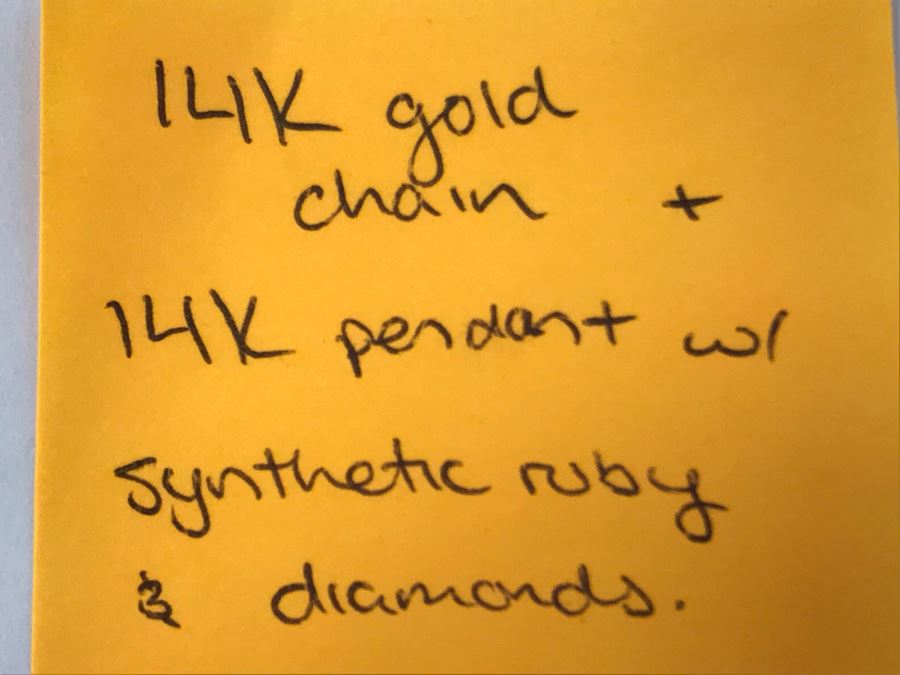 14K gold
chain +
14K pendant w/
synthetic ruby
& diamonds.